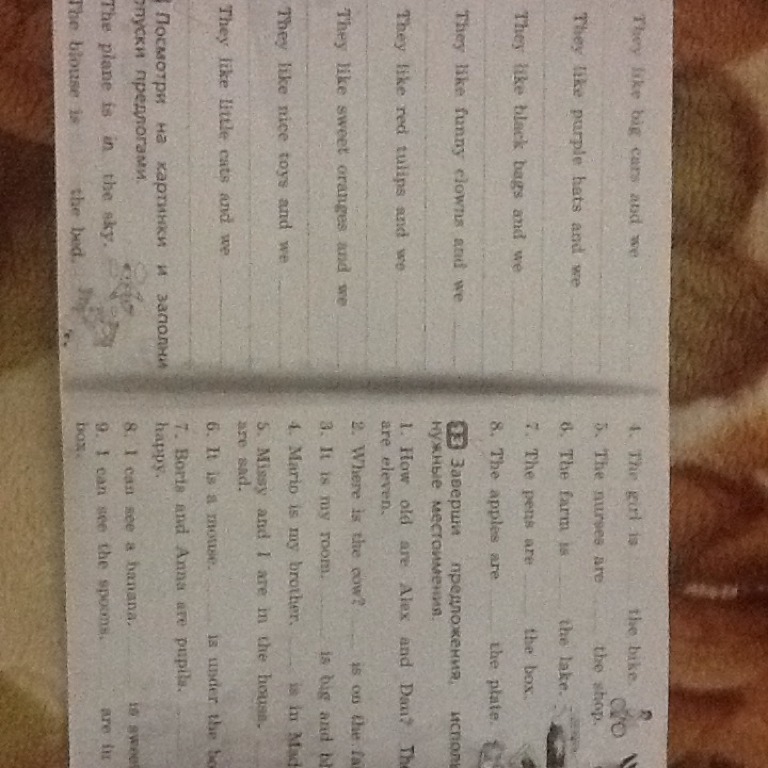 They like big cars and we
They like purple hats and we
They like black bags and we
They like funny clowns and we
They like red tulips and we
They like sweet oranges and we
They like nice toys and we
They like little cats and we
Посмотри на картинки и заполни
пропуски предлогами.
The plane is in the sky.
The blouse is the bed.
4. The girl is the bike.
5. The nurses are the shop.
6. The farm is the lake.
7. The pens are the box.
8. The apples are the plate.
13 Заверши предложения,
нужные местоимения.
1. How old are Alex and Dan?
are eleven.
2. Where is the cow? is on the
3. It is my room. is big and
4. Mario is my brother. is in
5. Missy and I are in the house.
are sad.
6. It is a mouse. is under the
7. Boris and Anna are pupils.
happy.
8. I can see a banana. is
9. I can see the spoons. are
box.